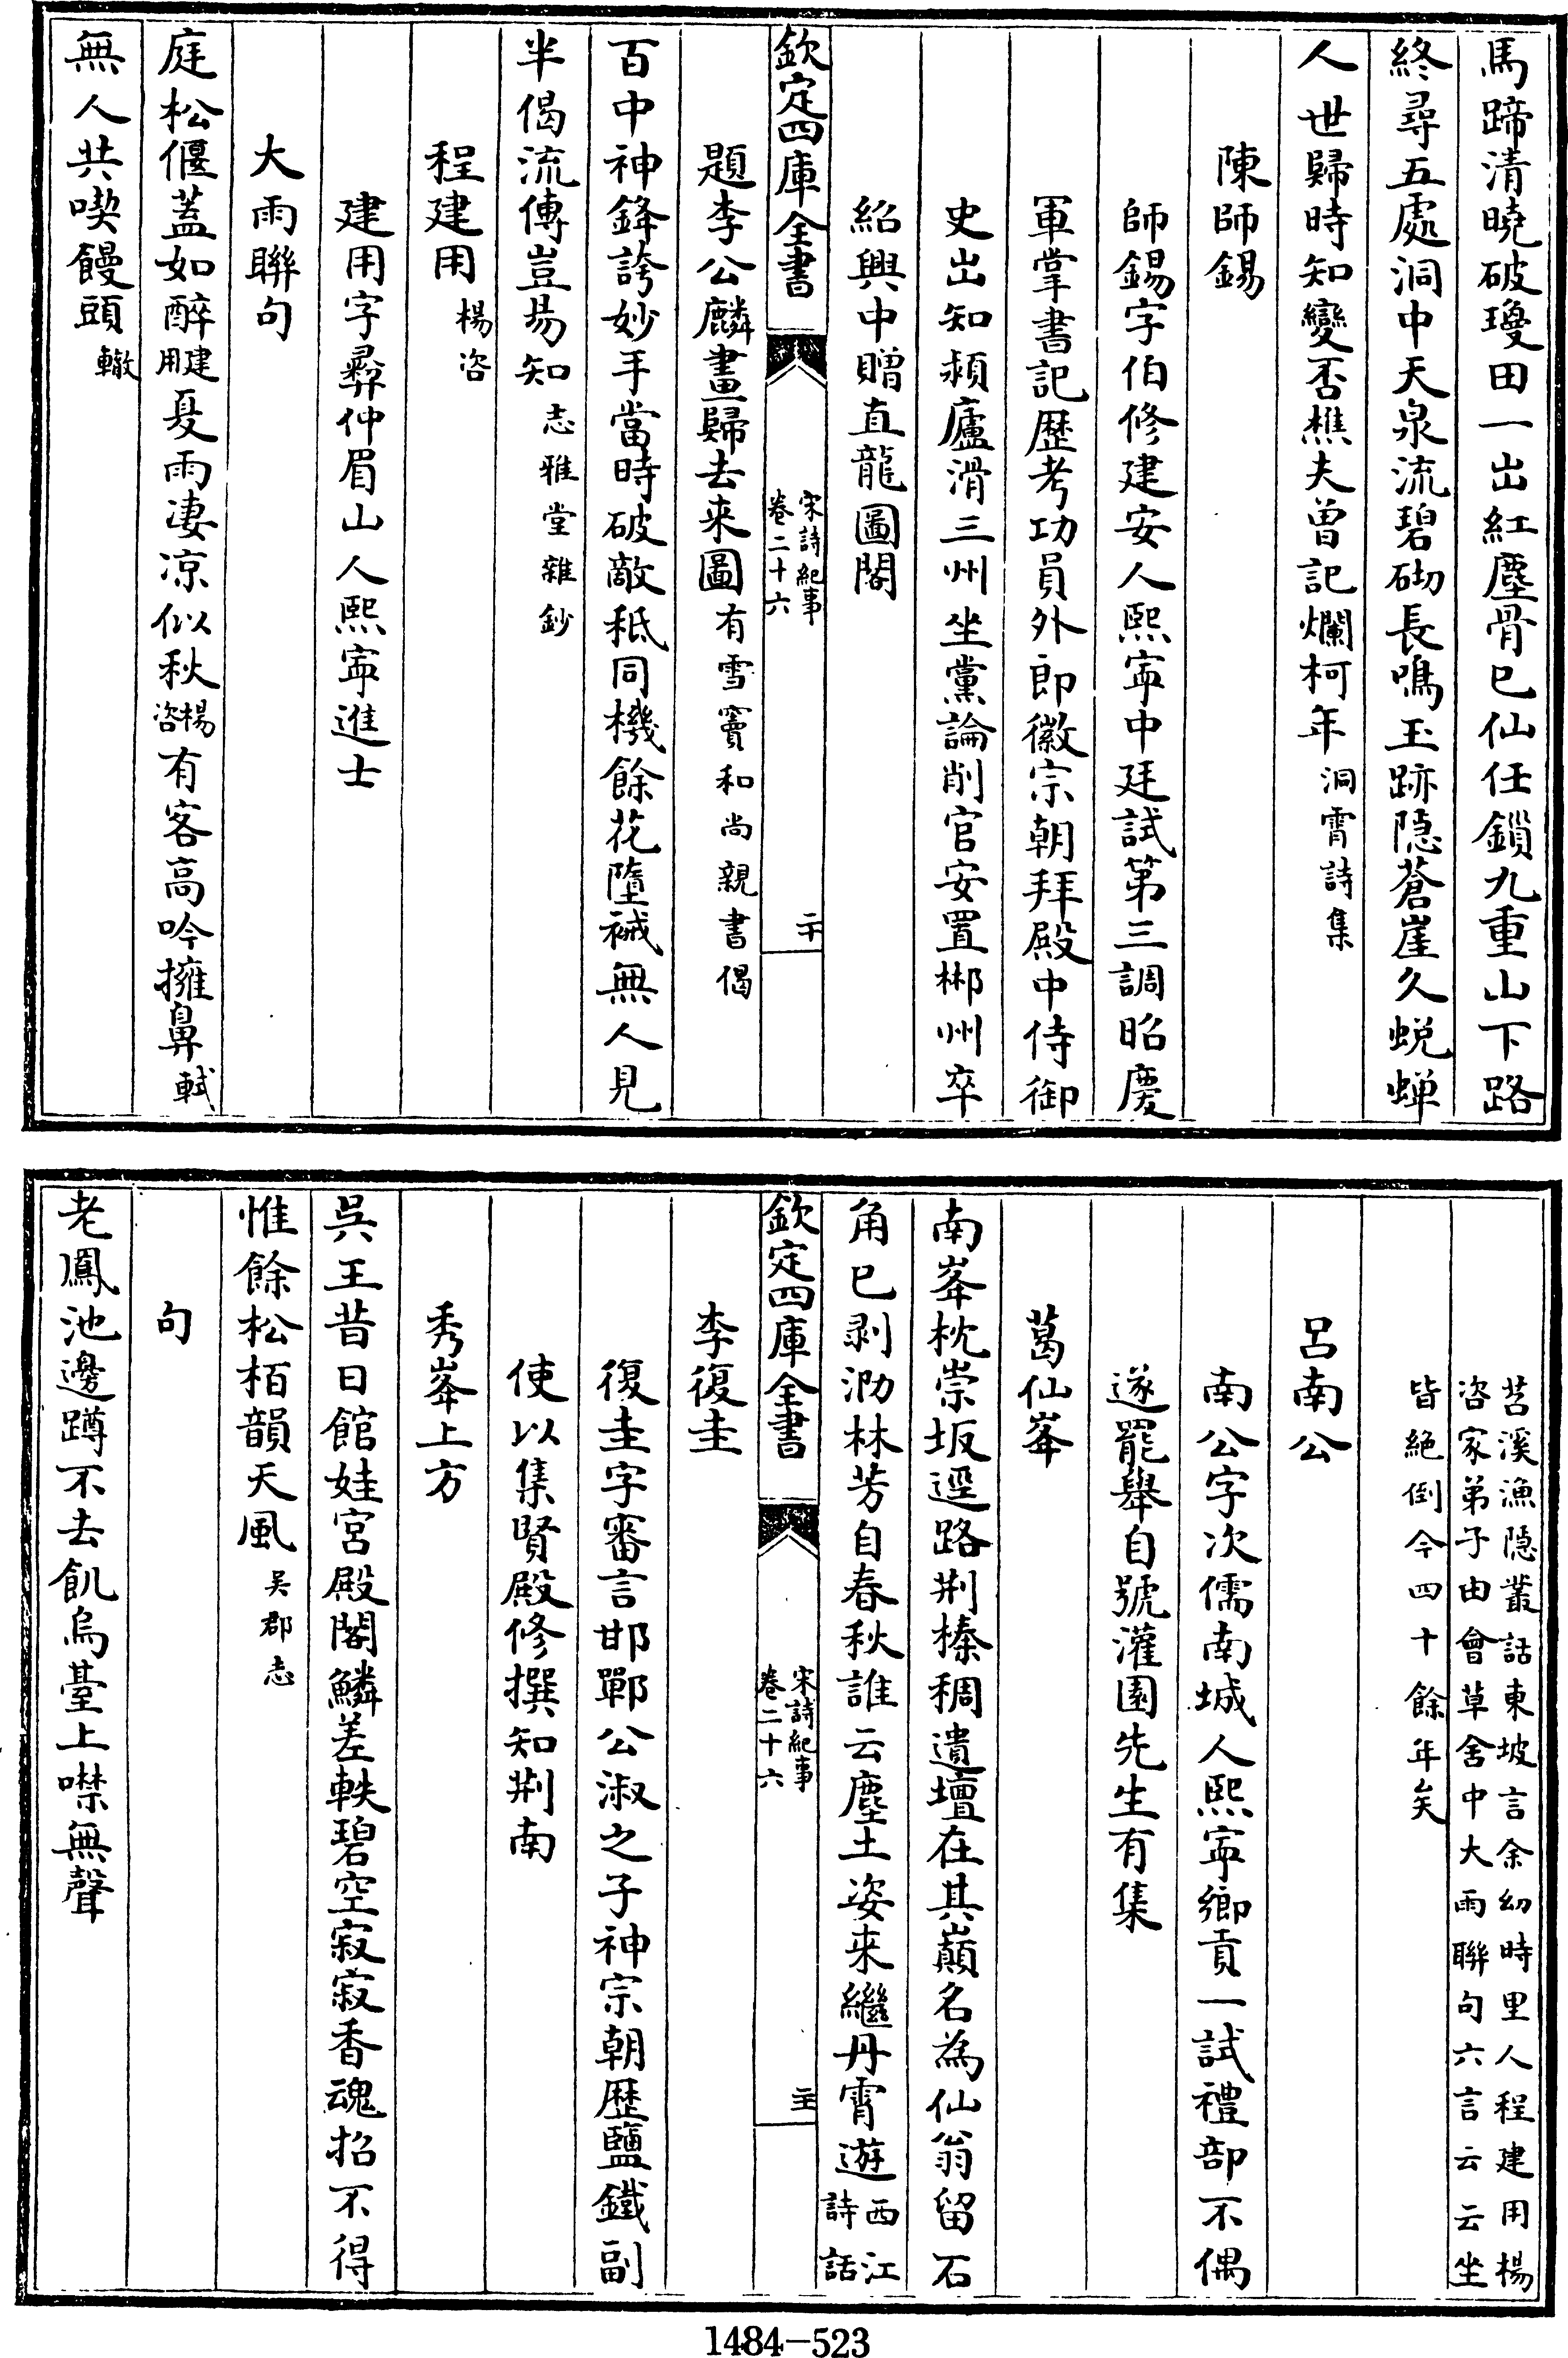 馬蹄清曉破瓊田一出紅塵骨已仙任鎖九重山下路
終尋五處洞中天泉流碧砌長鳴玉跡隱蒼崖久蛻蟬
人世歸時知變否樵夫曾記爛柯年洞霄詩集
陳師錫
師錫字伯修建安人熙寧中廷試第三調昭慶
軍掌書記歴考功員外郎徽宗朝拜殿中侍御
史出知頴廬滑三州坐黨論削官安置郴州卒
紹興中贈直龍圖閣
欽定四庫全書
宋詩紀事
卷二十六
二十
題李公麟畫歸去来圖有雪竇和尚親書偈
百中神鋒誇妙手當時破敵秪同機餘花墮𥙷無人見
半偈流傳豈易知志雅堂雜鈔
程建用楊咨
建用字彞仲眉山人熙寧進士
大雨聯句
庭松偃蓋如醉建用夏雨凄凉似秋楊咨有客高吟擁鼻軾
無人共喫饅頭轍
苕溪漁隱叢話東坡言余幼時里人程建用楊
咨家弟子由會草舍中大雨聯句六言云云坐
皆絶倒今四十餘年矣
呂南公
南公字次儒南城人熙寧鄉貢一試禮部不偶
遂罷舉自號灌園先生有集
葛仙峯
南峯枕崇坂逕路荆榛稠遺壇在其巔名為仙翁留石
角已剥泐林芳自春秋誰云塵土姿来繼丹霄遊西江
詩話
欽定四庫全書
宋詩紀事
卷二十六
二十一
李復圭
復圭字審言邯鄲公淑之子神宗朝歴鹽鐵副
使以集賢殿修撰知荆南
秀峯上方
吳王昔日館娃宮殿閣鱗差軼碧空寂寂香魂招不得
惟餘松栢韻天風吴郡志
句
老鳳池邊蹲不去飢烏臺上噤無聲
1484-523